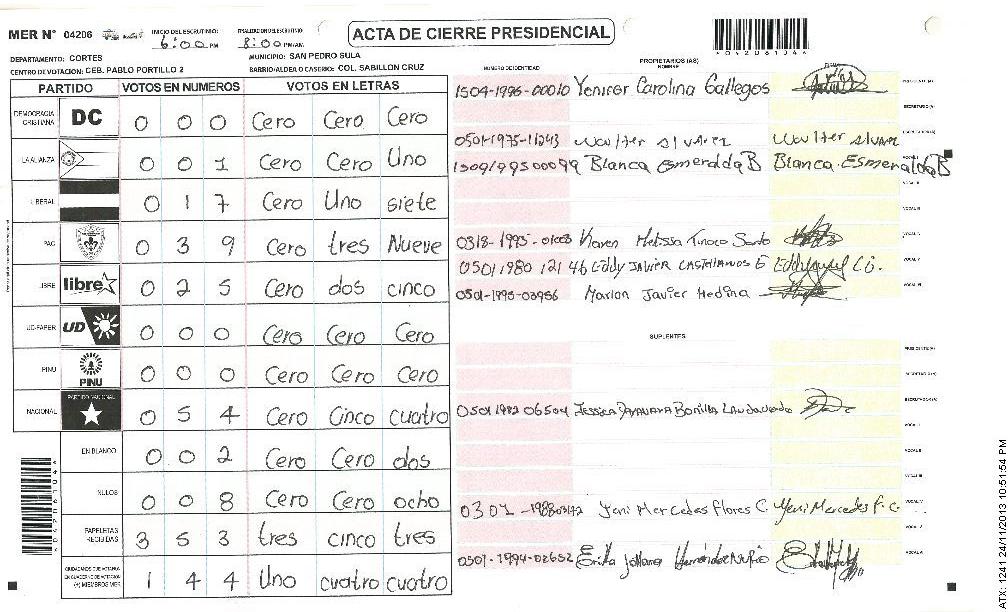 MER N° 04206
INICIO DEL ESCRUTINIO: 6:00 PM
FINALIZACION DEL ESCRUTINIO: 8:00 PM/AM
ACTA DE CIERRE PRESIDENCIAL
4042061044
DEPARTAMENTO: CORTES
MUNICIPIO: SAN PEDRO SULA
CENTRO DE VOTACION: CEB. PABLO PORTILLO 2
BARRIO/ALDEA O CASERIO: COL. SABILLON CRUZ
PARTIDO VOTOS EN NUMEROS VOTOS EN LETRAS
DEMOCRACIA CRISTIANA DC 0 0 0 Cero Cero Cero
LA ALIANZA 0 0 1 Cero Cero Uno
LIBERAL 0 1 7 Cero Uno siete
PAC 0 3 9 Cero tres Nueve
LIBRE libre 0 2 5 Cero dos cinco
UD-FAPER UD 0 0 0 Cero Cero Cero
PINU PINU 0 0 0 Cero Cero Cero
NACIONAL PARTIDO NACIONAL 0 5 4 Cero Cinco cuatro
EN BLANCO 0 0 2 Cero Cero dos
NULOS 0 0 8 Cero Cero ocho
PAPELETAS RECIBIDAS 3 5 3 tres cinco tres
CIUDADANOS QUE VOTARON EN CUADERNO DE VOTACION (+) MIEMBROS MER 1 4 4 Uno cuatro cuatro
PROPIETARIOS (AS)
NUMERO DE IDENTIDAD NOMBRE FIRMA
1504-1996-00010 Yenifer Carolina Gallegos PRESIDENTE(A)
SECRETARIO(A)
0501-1975-11243 Woulter alvarez Woulter alvarez ESCRUTADOR(A)
1509199500099 Blanca Esmeralda B Blanca Esmeralda B VOCAL I
VOCAL II
VOCAL III
0318-1995-01003 Karen Melissa Tinoco VOCAL IV
0501 1980 121 46 Eddy JAVIER CASTELLANOS VOCAL V
0501-1995-03956 Marlon Javier Medina VOCAL VI
SUPLENTES
PRESIDENTE(A)
SECRETARIO(A)
0501 1982 06504 Jessica Bonilla ESCRUTADOR(A)
VOCAL I
VOCAL II
VOCAL III
0301 Yeni Mercedes Flores C. Yeni Mercedes F. C. VOCAL IV
VOCAL V
0501-1994-02652 Erika VOCAL VI
ATX: 1241 24/11/2013 10:51:54 PM